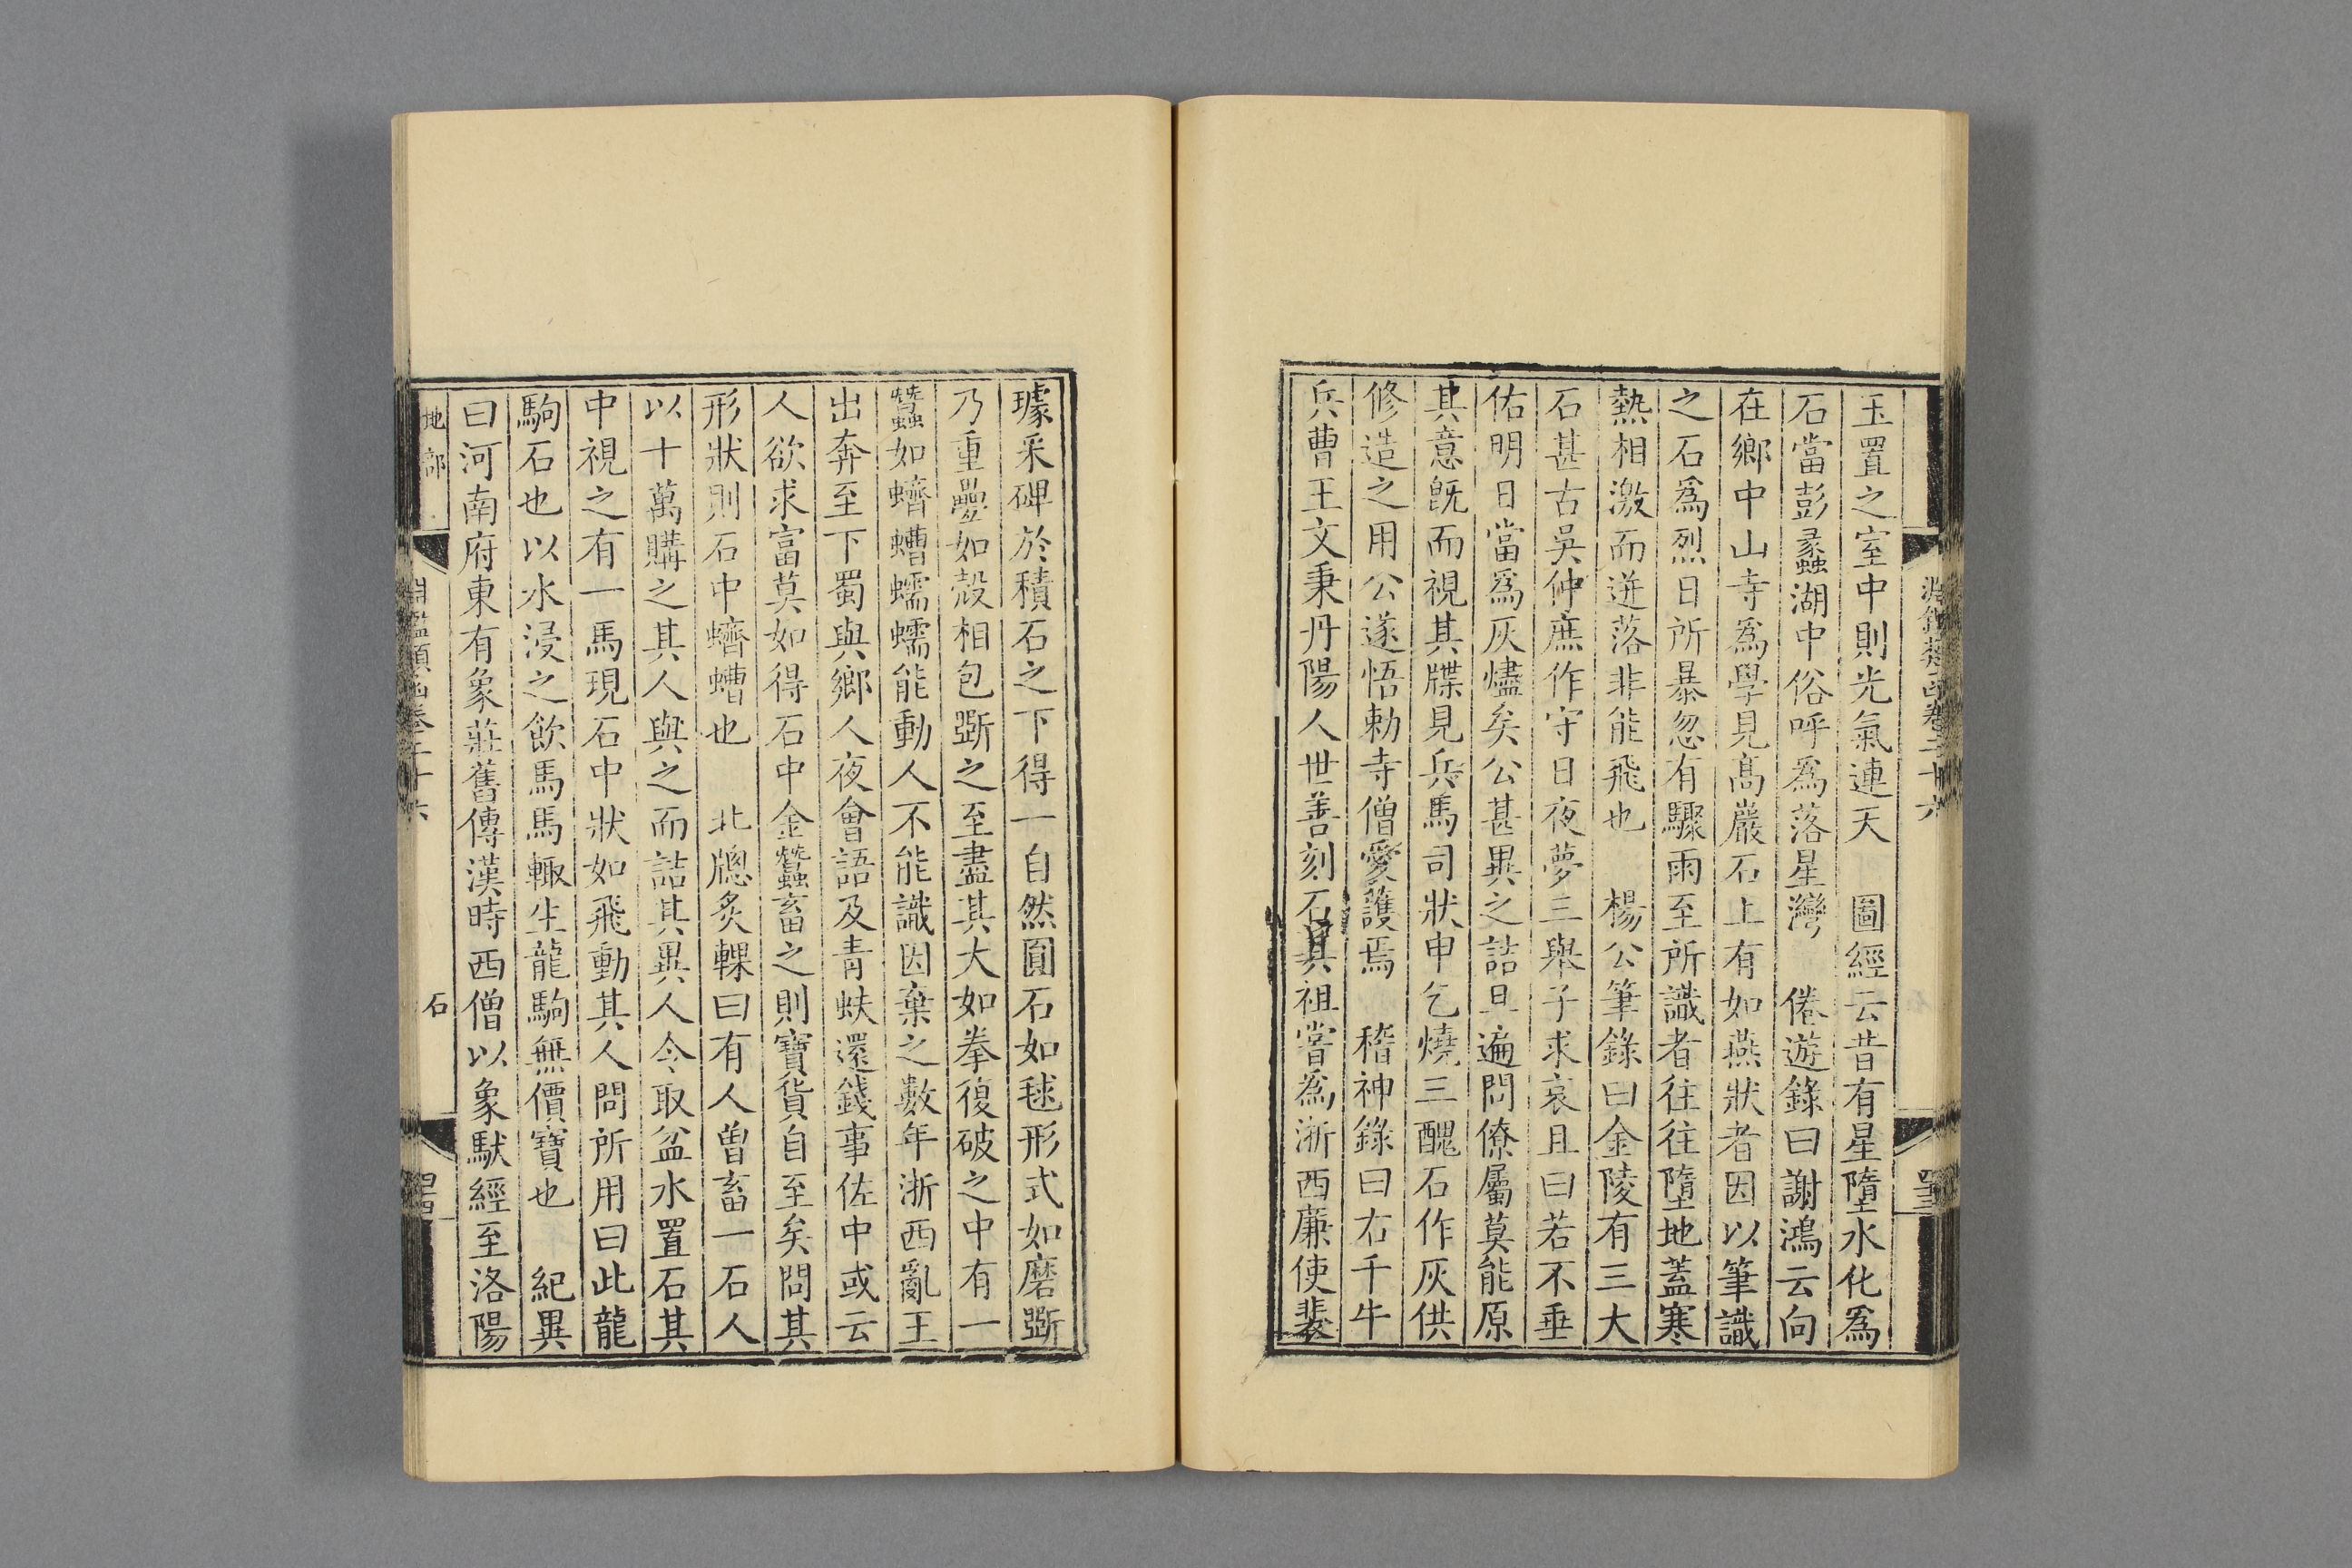 淵鑑類函卷二十六
玉置之室中則光氣連天　圖經云昔有星墮水化爲
石當彭蠡湖中俗呼爲落星灣　倦遊錄曰謝鴻云向
在鄉中山寺爲學見高巖石上有如燕狀者因以筆識
之石爲烈日所暴忽有驟雨至所識者往往墮地蓋寒
熱相激而迸落非能飛也　楊公筆錄曰金陵有三大
石甚古吳仲庶作守日夜夢三舉子求哀且曰若不垂
佑明日當爲灰燼矣公甚異之詰旦遍問僚屬莫能原
其意旣而視其牒見兵馬司狀申乞燒三醜石作灰供
修造之用公遂悟勅寺僧愛護焉　稽神錄曰右千牛
兵曹王文秉丹陽人世善刻石其祖嘗爲浙西廉使裴
璩采碑於積石之下得一自然圓石如毬形式如磨斲
乃重疊如殼相包斲之至盡其大如拳復破之中有一
蠶如蠐螬蠕蠕能動人不能識因棄之數年浙西亂王
出奔至下蜀與鄉人夜會語及青蚨還錢事佐中或云
人欲求富莫如得石中金蠶畜之則寶貨自至矣問其
形狀則石中蠐螬也　北牕炙輠曰有人曾畜一石人
以十萬購之其人與之而詰其異人令取盆水置石其
中視之有一馬現石中狀如飛動其人問所用曰此龍
駒石也以水浸之飲馬馬輙生龍駒無價寶也　紀異
曰河南府東有象莊舊傳漢時西僧以象馱經至洛陽
地部
淵鑑類函卷二十六
石